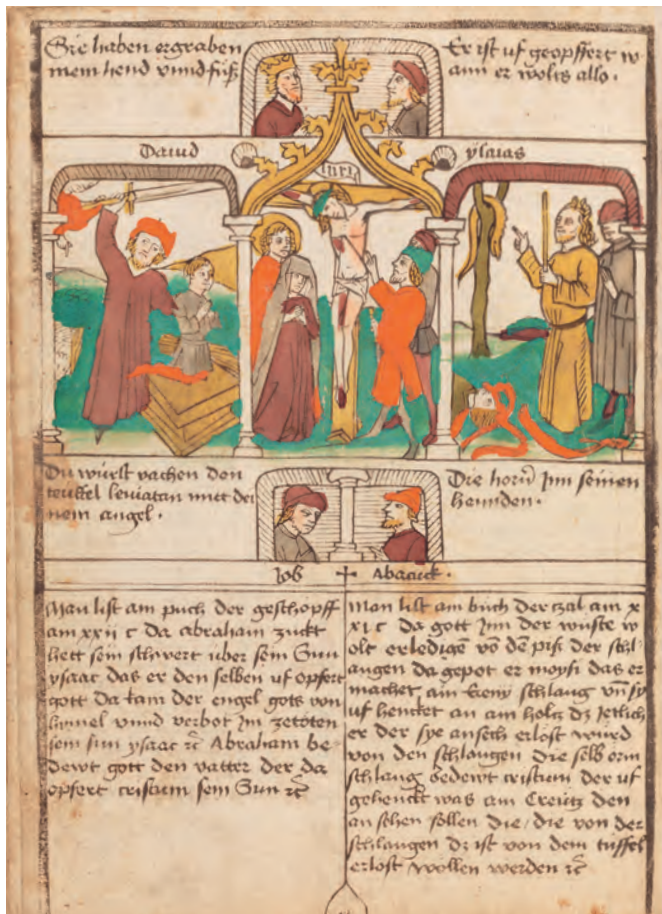 Sie haben ergraben
mein hend vnnd füß
Er ist uf geopffert w
ann er wolts also .
Dauid
ysaias
inri
Du würst vachen den
teuffel leviatan mitt dei
nem angel .
Die horn Jnn seinen
hennden .
Job + Abacuck .
Man list am puch der geschopff
am xxii c da abraham zuckt
hett sein schwert uber sein Sun
ysaac das er den selben uf opfert
gott da kam der engel gots von
hymel vnnd verbot Jm zetöten
sein sun ysaac rc Abraham be
dewt gott den vatter der da
opfert cristum sein Sun rc
Man list am buch der zal am x
xi c da gott Jnn der wuste w
olt erledigē vō dē piß der schl
angen da gepot er moysi das er
machet ain Eeny schlang vn̄ sy
uf hencket an ain holtz dz Jetlich
er der sye ansech erlöst würd
von den schlangen die selb erin
schlang bedewt cristum der uf
gehenckt was am Creütz den
an sehen söllen die / die von der
schlangen dz ist von dem tüffel
erlöst wöllen werden rc